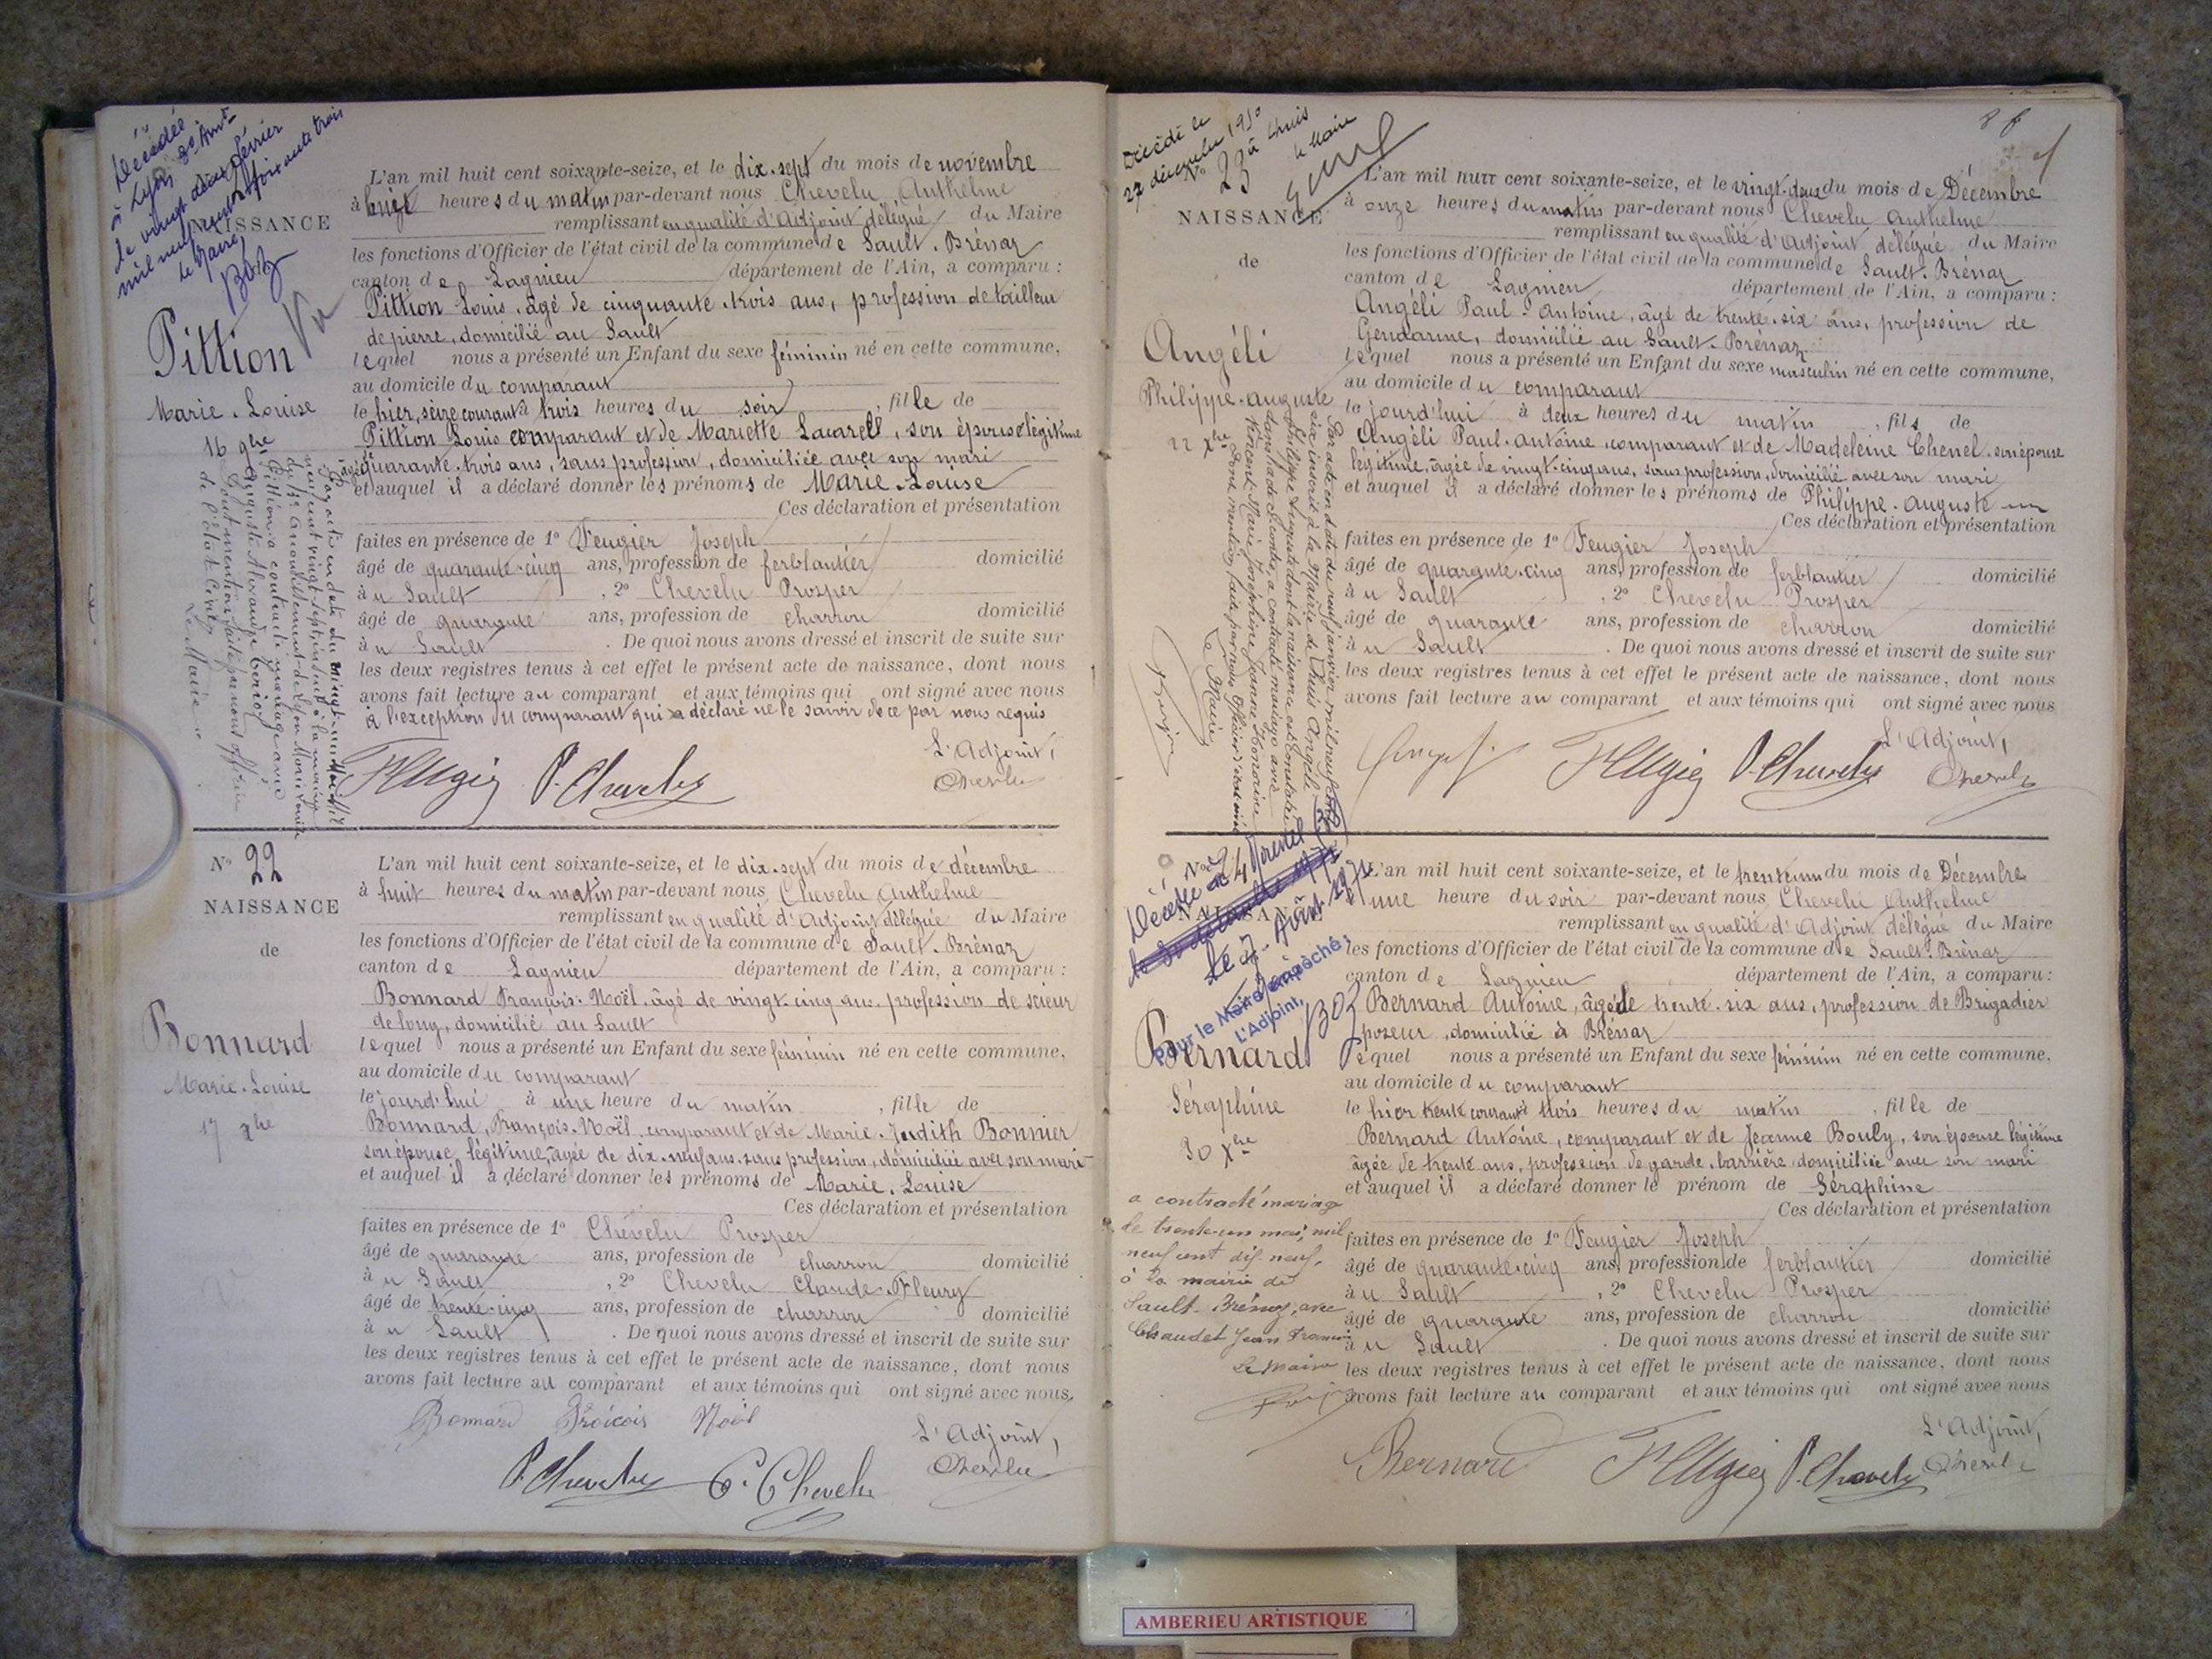 Décédée
à Lyon
le vingt deux février
mil neuf cent soixante trois
le Maire,
Boz
Vu
NAISSANCE
Pittion
Marie-Louise
16 9bre
L'an mil huit cent soixante-seize, et le dix-sept du mois de novembre
à onze heures du matin par-devant nous Chevelu Anthelme
remplissant en qualité d'Adjoint délégué du Maire
les fonctions d'Officier de l'état civil de la commune de Sault-Brénaz
canton de Lagnieu département de l'Ain, a comparu :
Pittion Louis, âgé de cinquante-trois ans, profession de tailleur
de pierre, domicilié au Sault
lequel nous a présenté un Enfant du sexe féminin né en cette commune,
au domicile du comparant
le hier, seize courant à trois heures du soir, fille de
Pittion Louis comparant et de Mariette Lacarell, son épouse légitime
âgée de quarante-trois ans, sans profession, domiciliée avec son mari
et auquel il a déclaré donner les prénoms de Marie-Louise
Ces déclaration et présentation
faites en présence de 1° Feugier Joseph
âgé de quarante-cinq ans, profession de ferblantier domicilié
au Sault, 2° Chevelu Prosper
âgé de quarante ans, profession de charron domicilié
au Sault. De quoi nous avons dressé et inscrit de suite sur
les deux registres tenus à cet effet le présent acte de naissance, dont nous
avons fait lecture au comparant et aux témoins qui ont signé avec nous
à l'exception du comparant qui a déclaré ne le savoir de ce par nous requis
L'Adjoint,
Feugier P. Chevelu Chevelu
Par acte en date du vingt-un Mai Mil
neuf cent vingt sept, inscrit à la mairie
du 1er arrondissement de Lyon Marie Louise
Pittion a contracté mariage avec
Auguste Alexandre Cerioz
Dont mention faite par nous officier
de l'Etat Civil
Le Maire
N° 22
NAISSANCE
de
Bonnard
Marie-Louise
17 xbre
L'an mil huit cent soixante-seize, et le dix-sept du mois de décembre
à huit heures du matin par-devant nous Chevelu Anthelme
remplissant en qualité d'Adjoint délégué du Maire
les fonctions d'Officier de l'état civil de la commune de Sault-Brénaz
canton de Lagnieu département de l'Ain, a comparu :
Bonnard François-Noël, âgé de vingt-cinq ans, profession de scieur
de long, domicilié au Sault
lequel nous a présenté un Enfant du sexe féminin né en cette commune,
au domicile du comparant
le jourd'hui à une heure du matin, fille de
Bonnard, François-Noël, comparant et de Marie-Judith Bonnier
son épouse légitime, âgée de dix-neuf ans, sans profession, domiciliée avec son mari
et auquel il a déclaré donner les prénoms de Marie-Louise
Ces déclaration et présentation
faites en présence de 1° Chevelu Prosper
âgé de quarante ans, profession de charron domicilié
au Sault, 2° Chevelu Claude-Fleury
âgé de trente-cinq ans, profession de charron domicilié
au Sault. De quoi nous avons dressé et inscrit de suite sur
les deux registres tenus à cet effet le présent acte de naissance, dont nous
avons fait lecture au comparant et aux témoins qui ont signé avec nous.
Bonnard Froicois Noël
L'Adjoint,
P. Chevelu C. Chevelu Chevelu
Décédé le
27 décembre 1950
à Lhuis
le Maire
N° 23
NAISSANCE
de
Angéli
Philippe-auguste
22 xbre
L'an mil huit cent soixante-seize, et le vingt-deux du mois de Décembre
à onze heures du matin par-devant nous Chevelu Anthelme
remplissant en qualité d'Adjoint délégué du Maire
les fonctions d'Officier de l'état civil de la commune de Sault-Brénaz
canton de Lagnieu département de l'Ain, a comparu :
Angéli Paul-Antoine, âgé de trente-six ans, profession de
Gendarme, domicilié au Sault-Brénaz
lequel nous a présenté un Enfant du sexe masculin né en cette commune,
au domicile du comparant
le jourd'hui à deux heures du matin, fils de
Angéli Paul-antoine comparant et de Madeleine Chenel, son épouse
légitime, âgée de vingt-cinq ans, sans profession, domicilié avec son mari
et auquel il a déclaré donner les prénoms de Philippe-auguste
Ces déclaration et présentation
faites en présence de 1° Feugier Joseph
âgé de quarante-cinq ans, profession de ferblantier domicilié
au Sault, 2° Chevelu Prosper
âgé de quarante ans, profession de charron domicilié
au Sault. De quoi nous avons dressé et inscrit de suite sur
les deux registres tenus à cet effet le présent acte de naissance, dont nous
avons fait lecture au comparant et aux témoins qui ont signé avec nous
L'Adjoint,
Feugier P. Chevelu Chevelu
Par acte en date du neuf janvier mil neuf cent
six inscrit à la Mairie de Lhuis Angéli
Philippe Auguste dont la naissance est constatée
dans l'acte ci-contre, a contracté mariage avec
Vincent Marie Joséphine Jeanne Honorine
Dont mention faite par nous Officier d'état civil
Le Maire,
N° 24
NAISSANCE
Décédée
Le 27 Août 1971
Pour le Maire empêché:
L'Adjoint,
Boz
Bernard
Séraphine
30 Xbre
a contracté mariage
le trente-un mai, mil
neuf cent dix neuf,
à la mairie de
Sault-Brénaz, avec
Chaudet Jean Francois
Le Maire
L'an mil huit cent soixante-seize, et le trente un du mois de Décembre
à une heure du soir par-devant nous Chevelu Anthelme
remplissant en qualité d'Adjoint délégué du Maire
les fonctions d'Officier de l'état civil de la commune de Sault-Brénaz
canton de Lagnieu département de l'Ain, a comparu :
Bernard Antoine, âgé de trente-six ans, profession de Brigadier
poseur, domicilié à Brénaz
lequel nous a présenté un Enfant du sexe féminin né en cette commune,
au domicile du comparant
le hier trente courant à trois heures du matin, fille de
Bernard Antoine, comparant et de Jeanne Bouly, son épouse légitime
âgée de trente ans, profession de garde-barrière domiciliée avec son mari
et auquel il a déclaré donner le prénom de Séraphine
Ces déclaration et présentation
faites en présence de 1° Feugier Joseph
âgé de quarante-cinq ans, profession de ferblantier domicilié
au Sault, 2° Chevelu Prosper
âgé de quarante ans, profession de charron domicilié
au Sault. De quoi nous avons dressé et inscrit de suite sur
les deux registres tenus à cet effet le présent acte de naissance, dont nous
avons fait lecture au comparant et aux témoins qui ont signé avec nous
L'Adjoint,
Bernard Feugier P. Chevelu Chevelu
AMBERIEU ARTISTIQUE